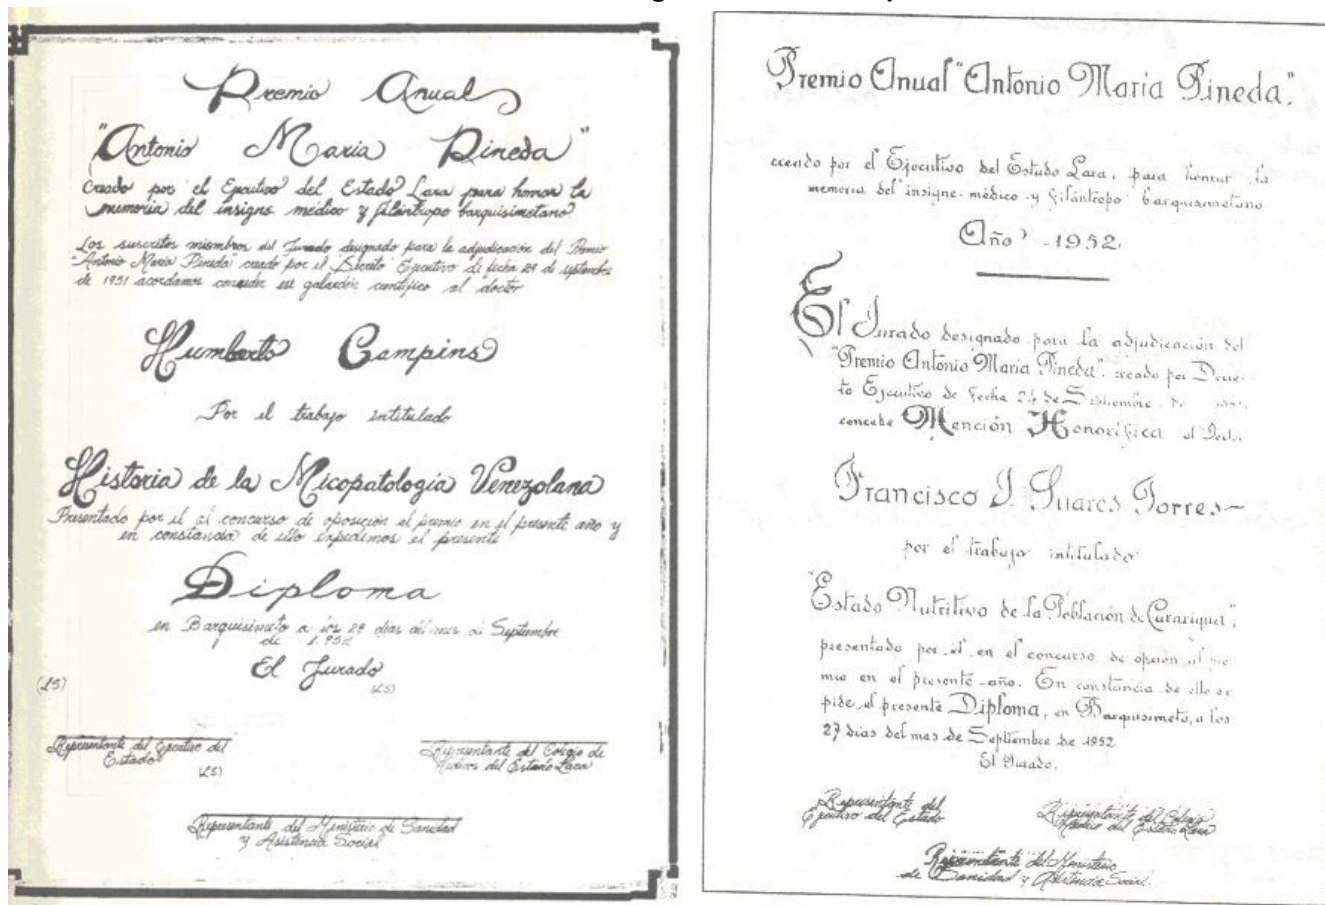 Premio Anual
"Antonio Maria Pineda"
Creado por el Ejecutivo del Estado Lara para honrar la
memoria del insigne médico y filántropo barquisimetano
Los suscritos miembros del Jurado designado para la adjudicación del Premio
"Antonio Maria Pineda" creado por el Decreto Ejecutivo de fecha 29 de septiembre
de 1951 acordamos conceder ese galardón científico al doctor
Humberto Campins
Por el trabajo intitulado
Historia de la Micopatologia Venezolana
Presentado por él al concurso de oposición el premio en el presente año y
en constancia de ello expedimos el presente
Diploma
en Barquisimeto a los 28 dias del mes de Septiembre
de 1.952
El Jurado
(LS)
(LS)
Representante del Ejecutivo del
Estado
(LS)
Representante del Colegio de
Médicos del Estado Lara
Representante del Ministerio de Sanidad
y Asistencia Social
Premio Anual "Antonio Maria Pineda".
creado por el Ejecutivo del Estado Lara, para honrar la
memoria del insigne médico y filántropo barquisimetano
Año 1952.
El Jurado designado para la adjudicación del
"Premio Antonio Maria Pineda". creado por Decre-
to Ejecutivo de Fecha de Septiembre de
concede Mención Honorífica al
Francisco J. Suares Torres
por el trabajo intitulado
"Estado Nutritivo de la Población de Curarigua",
presentado por él en el concurso de opción al pre-
mio en el presente año. En constancia de ello ex
pide el presente Diploma, en Barquisimeto, a los
27 dias del mes de Septiembre de 1952
El Jurado.
Representante del
Ejecutivo del Estado
Representante del Colegio
Médico del Estado Lara
Representante del Ministerio
de Sanidad y Asistencia Social.